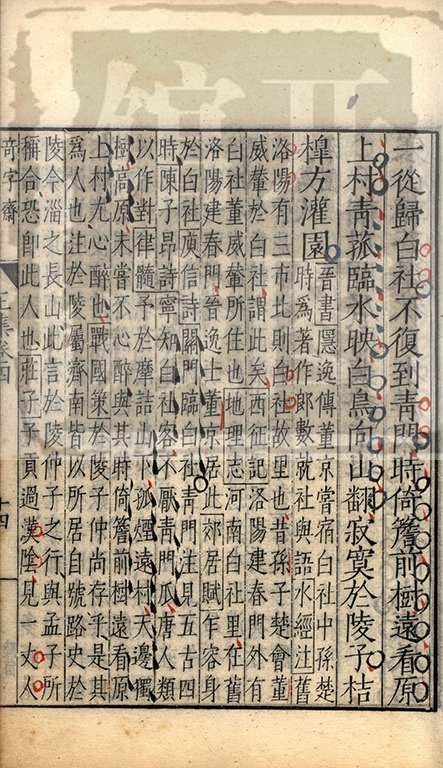 一從歸白社不復到青門時倚簷前樹遠看原
上村青菰臨水映白鳥向山翻寂寞於陵子桔
橰方灌園
晉書隱逸傳董京嘗宿白社中孫楚
時為著作郎數就社與語水經注舊
洛陽有三市北則白社故里也昔孫子楚會董
威輦於白社謂此矣西征記洛陽建春門外有
白社董威輦所住也地理志河南白社里在舊
洛陽建春門晉逸士董京居此郊居賦乍容身
於白社庾信詩關門臨白社青門注見五古四
時陳子昂詩寧知白社客不厭青門瓜唐人類
以作對律髓予於摩詰山下孤煙遠村天邊獨
樹高原未嘗不心醉與其時倚簷前樹遠看原
上村尤心醉也戰國策於陵子仲尚存乎是其
為人也注於陵屬齊南皆以所居自號路史於
陵今淄之長山此言於陵仲子之行與孟子所
稱合恐即此人也莊子子貢過漢陰見一丈人
奇字齋
集卷四
十四